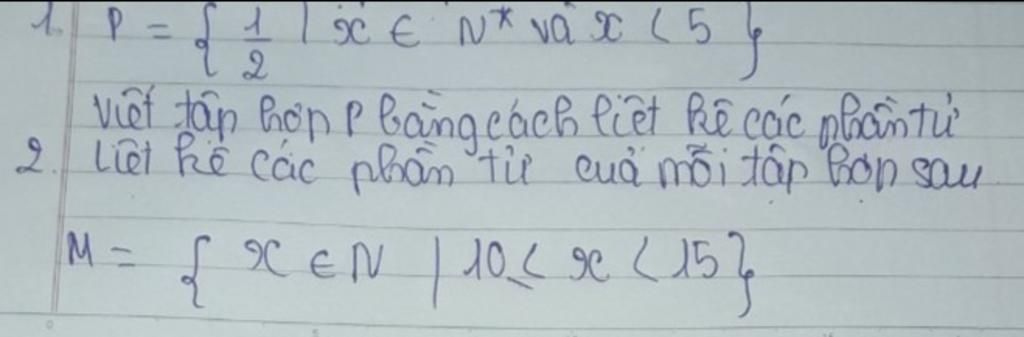 1. P = { 1/2 | x ∈ N* và x < 5 }
Viết tập hợp P bằng cách liệt kê các phần tử
2. Liệt kê các phần tử của mỗi tập hợp sau
M = { x ∈ N | 10 ≤ x < 15 }